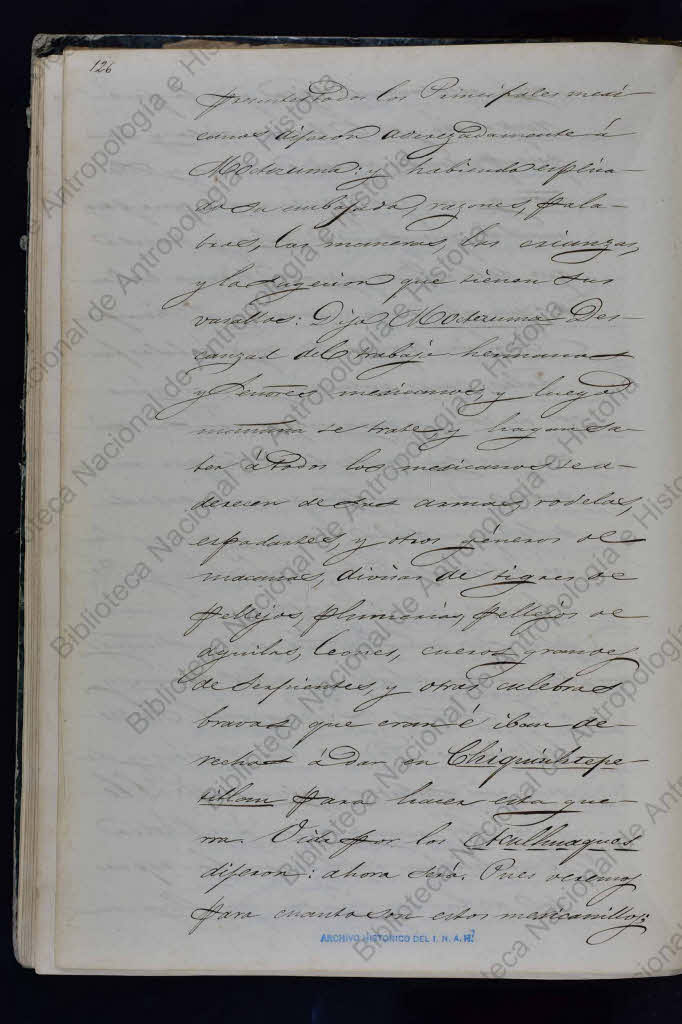 126
presentes todos los Principales mexi-
canos, dijeron aderezadamente á
Moctezuma: y habiendo esplica-
do su embajada, razones, pala-
bras, las maneras, las crianzas,
y la sugecion que tienen sus
vasallos: Dijo Moctezuma Des-
canzad del trabajo hermanos
y Señores mexicanos, y luego
mañana se trate y hagan sa-
ber á todos los mexicanos se a-
derecen de sus armas, rodelas,
espadartes, y otros géneros de
macanas, divisas de tigres de
pellejos, plumerías, pellejos de
aguilas, leones, cueros grandes
de serpientes, y otras culebras
bravas que eran é iban de-
rechos á dar en Chiquiuhtepe-
titlam para hacer esta gue-
rra. Vido por los Aculhuaques
dijeron: ahora sea. Pues veremos
para cuanto son estos mexicanillos;
ARCHIVO HISTORICO DEL I. N. A. H.
Biblioteca Nacional de Antropología e Historia